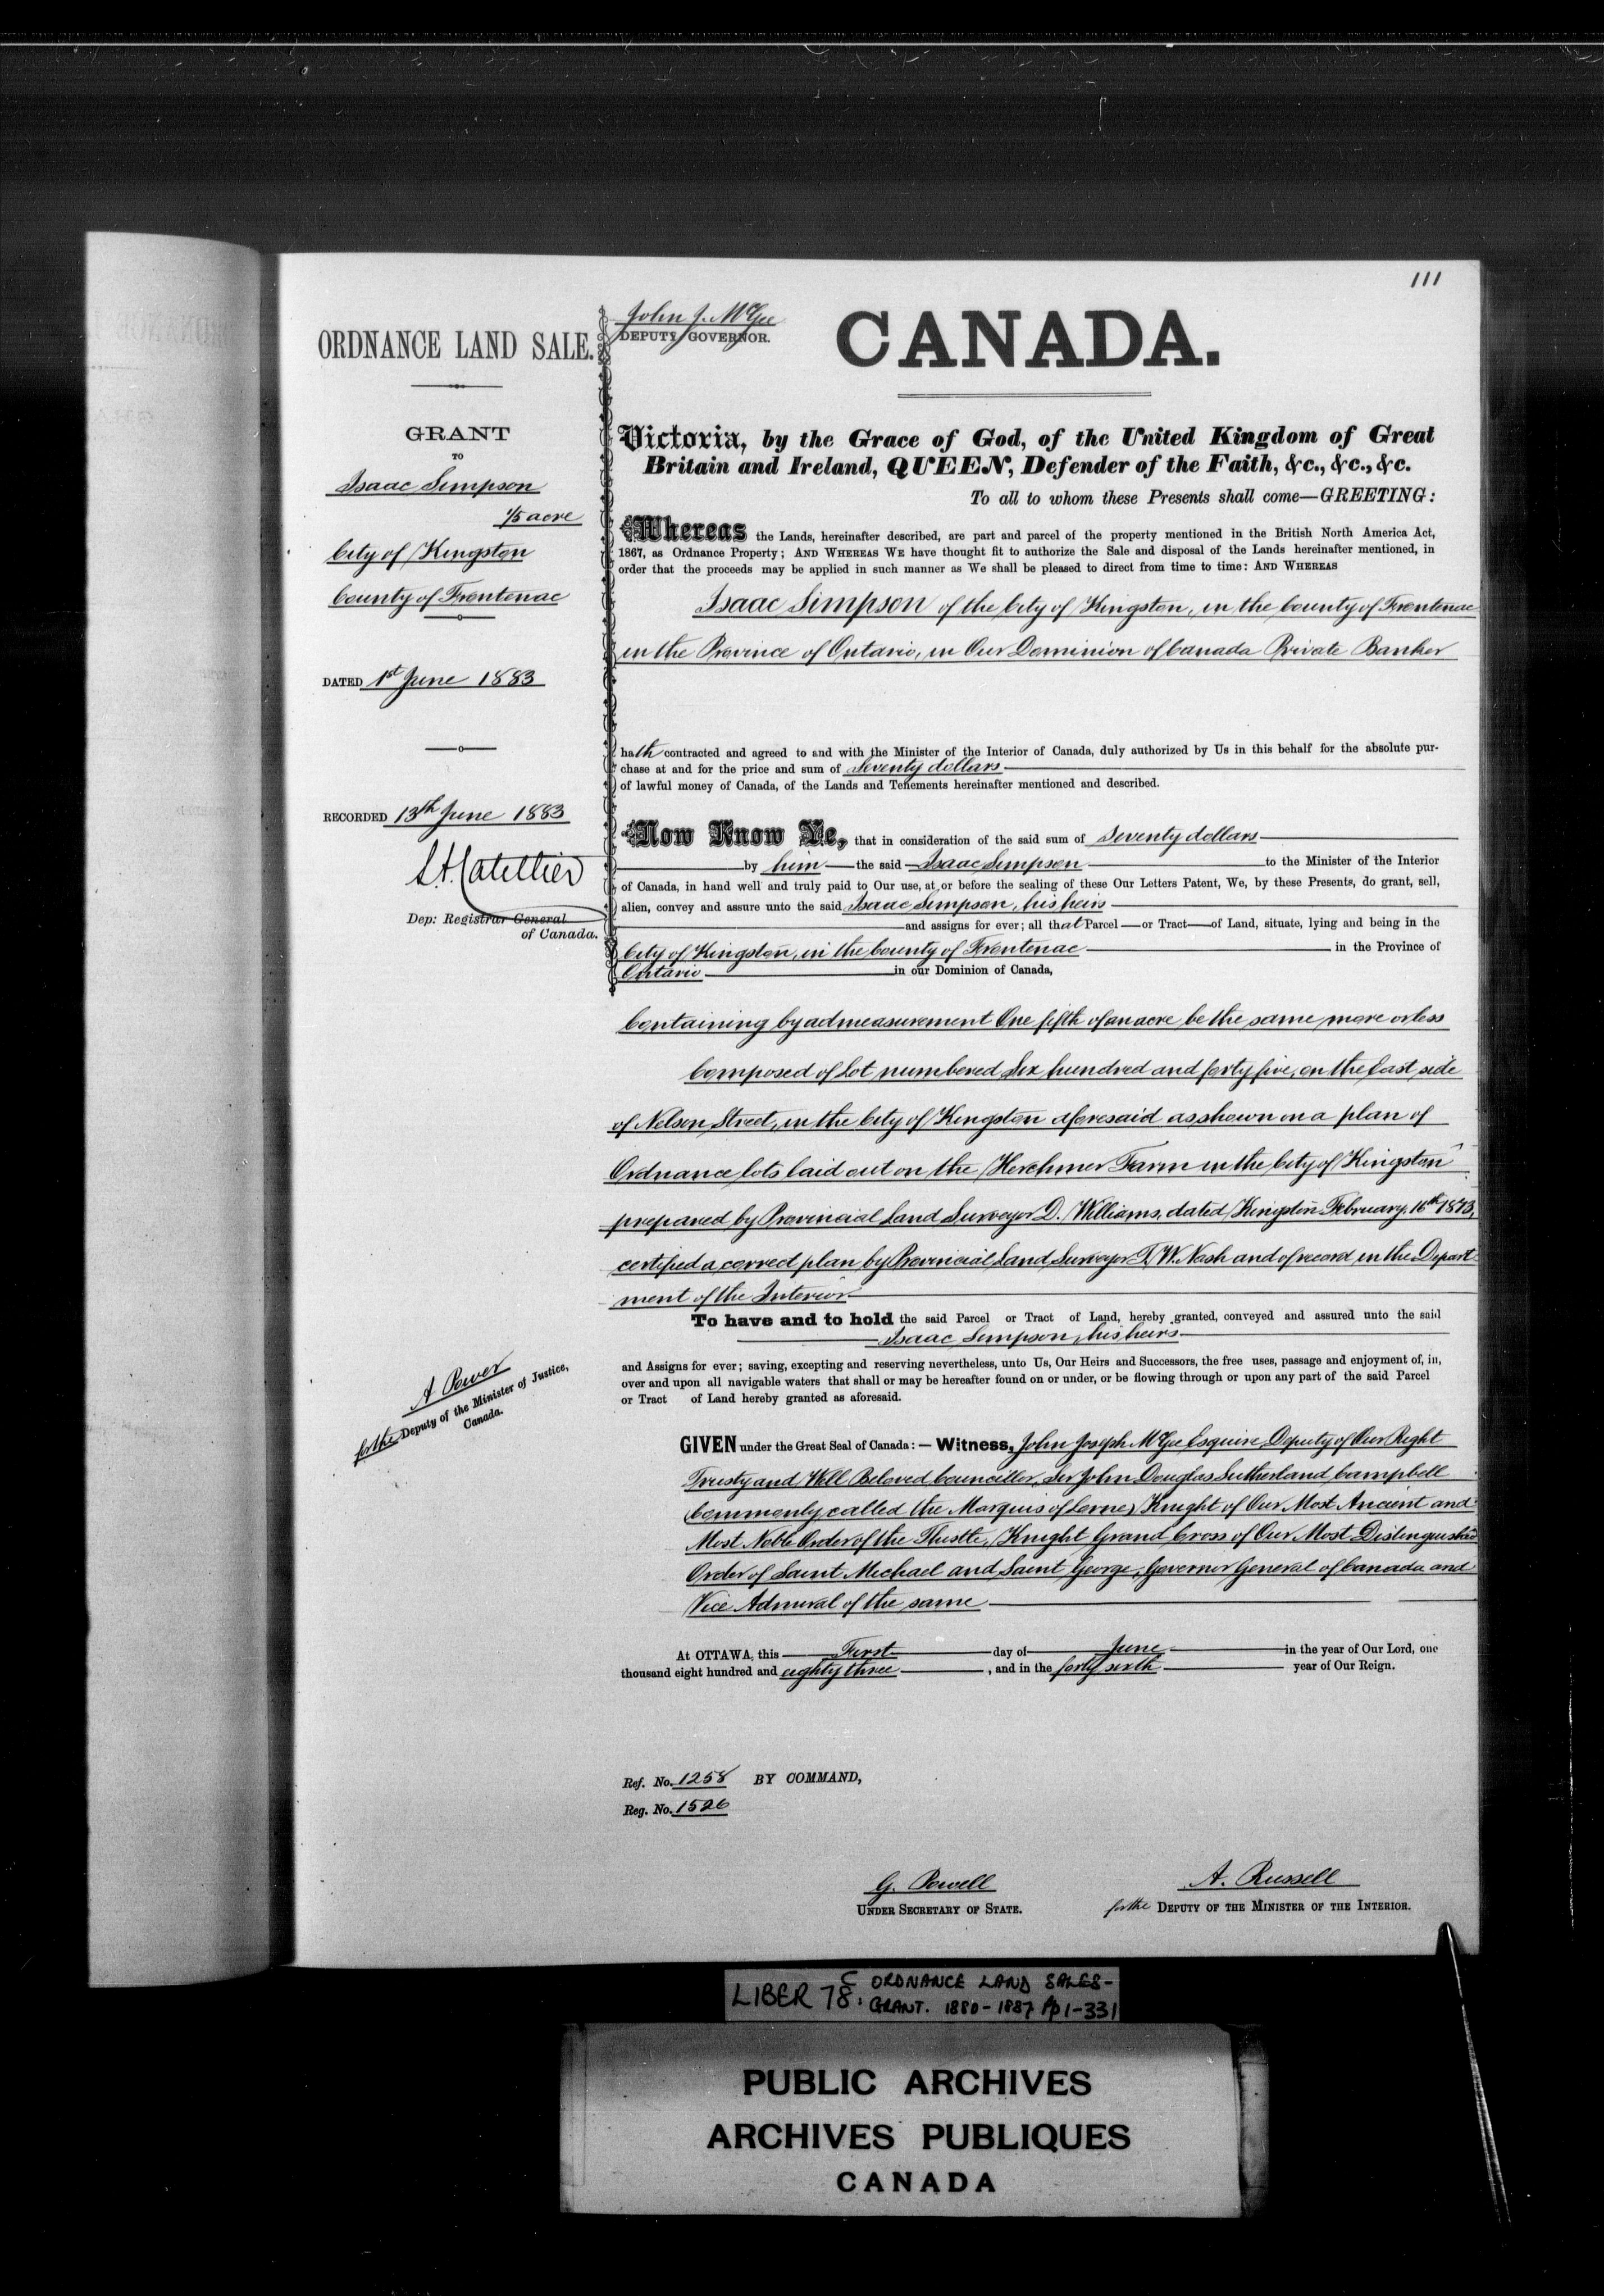 111
ORDNANCE LAND SALE.
GRANT
TO
Isaac Simpson
1/5 acre
City of Kingston
County of Frontenac
DATED 1st June 1883
RECORDED 13th June 1883
L.A. Catellier
Dep: Registrar General
of Canada.
A Power
for the Deputy of the Minister of Justice,
Canada.
John J. McGee
DEPUTY GOVERNOR.
CANADA.
Victoria, by the Grace of God, of the United Kingdom of Great
Britain and Ireland, QUEEN, Defender of the Faith, &c., &c., &c.
To all to whom these Presents shall come—GREETING:
Whereas the Lands, hereinafter described, are part and parcel of the property mentioned in the British North America Act,
1867, as Ordnance Property; AND WHEREAS WE have thought fit to authorize the Sale and disposal of the Lands hereinafter mentioned, in
order that the proceeds may be applied in such manner as We shall be pleased to direct from time to time: AND WHEREAS
Isaac Simpson of the City of Kingston, in the County of Frontenac
in the Province of Ontario, in Our Dominion of Canada Private Banker
hath contracted and agreed to and with the Minister of the Interior of Canada, duly authorized by Us in this behalf for the absolute pur-
chase at and for the price and sum of Seventy dollars
of lawful money of Canada, of the Lands and Tenements hereinafter mentioned and described.
Now Know Ye, that in consideration of the said sum of Seventy dollars
by him the said Isaac Simpson to the Minister of the Interior
of Canada, in hand well and truly paid to Our use, at or before the sealing of these Our Letters Patent, We, by these Presents, do grant, sell,
alien, convey and assure unto the said Isaac Simpson, his heirs
and assigns for ever; all that Parcel or Tract of Land, situate, lying and being in the
City of Kingston, in the County of Frontenac in the Province of
Ontario in our Dominion of Canada,
Containing by admeasurement One fifth of an acre be the same more or less
Composed of Lot numbered Six hundred and forty five, on the East side
of Nelson Street, in the City of Kingston aforesaid as shown on a plan of
Ordnance lots laid out on the Herchmer Farm in the City of Kingston
prepared by Provincial Land Surveyor D. Williams, dated Kingston February, 16th 1873,
certified a correct plan by Provincial Land Surveyor T. W. Nash and of record in the Depart-
ment of the Interior.
To have and to hold the said Parcel or Tract of Land, hereby granted, conveyed and assured unto the said
Isaac Simpson, his heirs
and Assigns for ever; saving, excepting and reserving nevertheless, unto Us, Our Heirs and Successors, the free uses, passage and enjoyment of, in,
over and upon all navigable waters that shall or may be hereafter found on or under, or be flowing through or upon any part of the said Parcel
or Tract of Land hereby granted as aforesaid.
GIVEN under the Great Seal of Canada:—Witness, John Joseph McGee Esquire Deputy of Our Right
Trusty and Well Beloved Councillor, Sir John Douglas Sutherland Campbell
(commonly called the Marquis of Lorne) Knight of Our Most Ancient and
Most Noble Order of the Thistle, Knight Grand Cross of Our Most Distinguished
Order of Saint Michael and Saint George, Governor General of Canada and
Vice Admiral of the same
At OTTAWA, this First day of June in the year of Our Lord, one
thousand eight hundred and eighty three, and in the forty sixth year of Our Reign.
Ref. No. 1258 BY COMMAND,
Reg. No. 1526
G. Powell
UNDER SECRETARY OF STATE.
A. Russell
for the DEPUTY OF THE MINISTER OF THE INTERIOR.
LIBER 78C: ORDNANCE LAND SALES-
GRANT. 1880-1887 Pp 1-331
PUBLIC ARCHIVES
ARCHIVES PUBLIQUES
CANADA